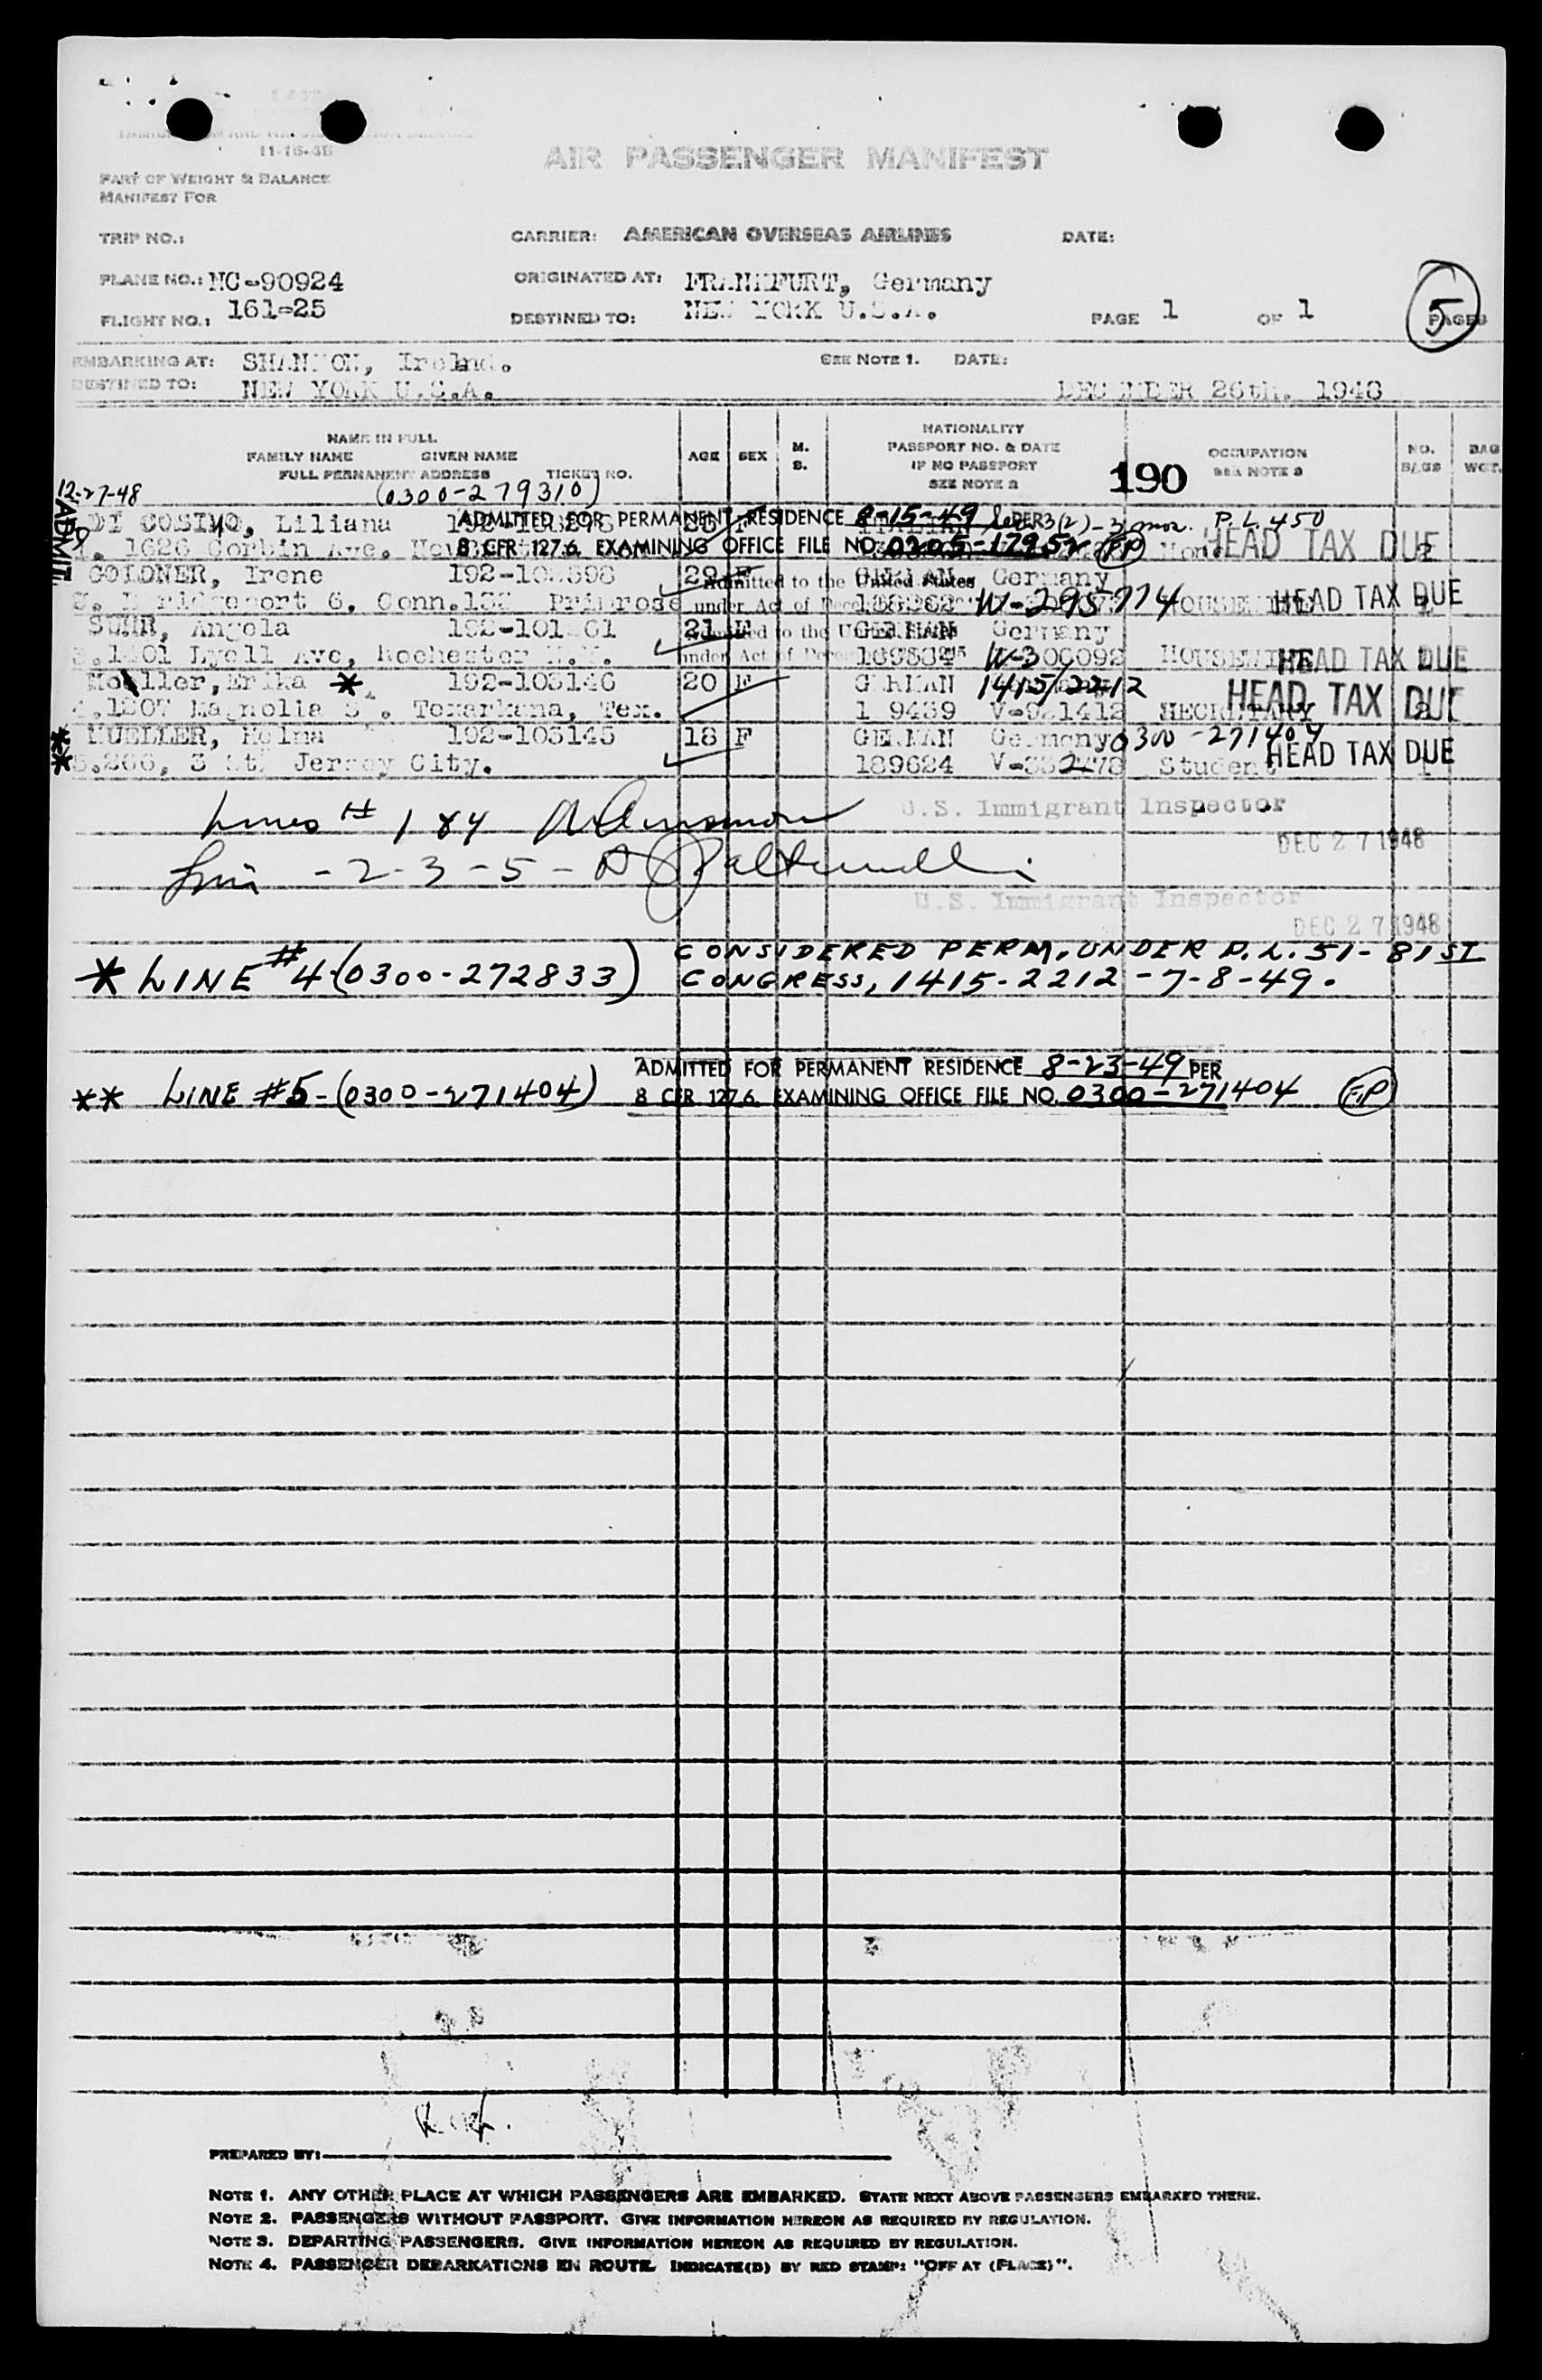 11-16-48
AIR PASSENGER MANIFEST
PART OF WEIGHT & BALANCE
MANIFEST FOR
TRIP NO.: CARRIER: AMERICAN OVERSEAS AIRLINES DATE:
PLANE NO.: NC-90924 ORIGINATED AT: FRANKFURT, Germany
FLIGHT NO.: 161-25 DESTINED TO: NEW YORK U.S.A. PAGE 1 OF 1 PAGES 5
EMBARKING AT: SHANNON, SEE NOTE 1. DATE:
DESTINED TO: NEW YORK U.S.A. DECEMBER 26th. 1948
NAME IN FULL
FAMILY NAME GIVEN NAME
FULL PERMANENT ADDRESS TICKET NO.
AGE SEX M. S.
NATIONALITY
PASSPORT NO. & DATE
IF NO PASSPORT
SEE NOTE 2
190
OCCUPATION
SEE NOTE 3
NO. BAGS BAG WGT.
12-27-48 (0300-279310)
ADMIT.
DI COSIMO, Liliana ADMITTED FOR PERMANENT RESIDENCE 8-15-49 PER 3(2)- P.L. 450
1626 Corbin Ave. 8 CFR 127.6. EXAMINING OFFICE FILE NO. 0205-17952 FP HEAD TAX DUE
GOLDNER, Irene 29 F Admitted to the United States GERMAN Germany
Bridgeport 6, Conn. Primrose under Act of W-295774 HOUSEWIFE HEAD TAX DUE
SUHR, Angela 21 F to the United States GERMAN Germany
3.1401 Lyell Ave, Rochester N.Y. under Act of W-300092 HOUSEWIFE HEAD TAX DUE
Moeller, Erika * 192-103146 20 F GERMAN 1415/2212
4.1307 Magnolia St. Texarkana, Tex. V-921412 SECRETARY HEAD TAX DUE 2
* MUELLER, Helma 192-103145 18 F GERMAN Germany 0300-271404
** 5.266, 3 St. Jersey City. 189624 Student HEAD TAX DUE 1
Lines # 1 & 4
U.S. Immigrant Inspector
DEC 27 1948
-2-3-5-
U.S. Immigrant Inspector
DEC 27 1948
* LINE #4-(0300-272833) CONSIDERED PERM. UNDER P.L. 51-81ST
CONGRESS, 1415-2212-7-8-49.
ADMITTED FOR PERMANENT RESIDENCE 8-23-49 PER
** LINE #5-(0300-271404) 8 CFR 127.6. EXAMINING OFFICE FILE NO. 0300-271404 FP
PREPARED BY:
NOTE 1. ANY OTHER PLACE AT WHICH PASSENGERS ARE EMBARKED. STATE NEXT ABOVE PASSENGERS EMBARKED THERE.
NOTE 2. PASSENGERS WITHOUT PASSPORT. GIVE INFORMATION HEREON AS REQUIRED BY REGULATION.
NOTE 3. DEPARTING PASSENGERS. GIVE INFORMATION HEREON AS REQUIRED BY REGULATION.
NOTE 4. PASSENGER DEBARKATIONS EN ROUTE. INDICATE(D) BY RED STAMP: "OFF AT (PLACE)".